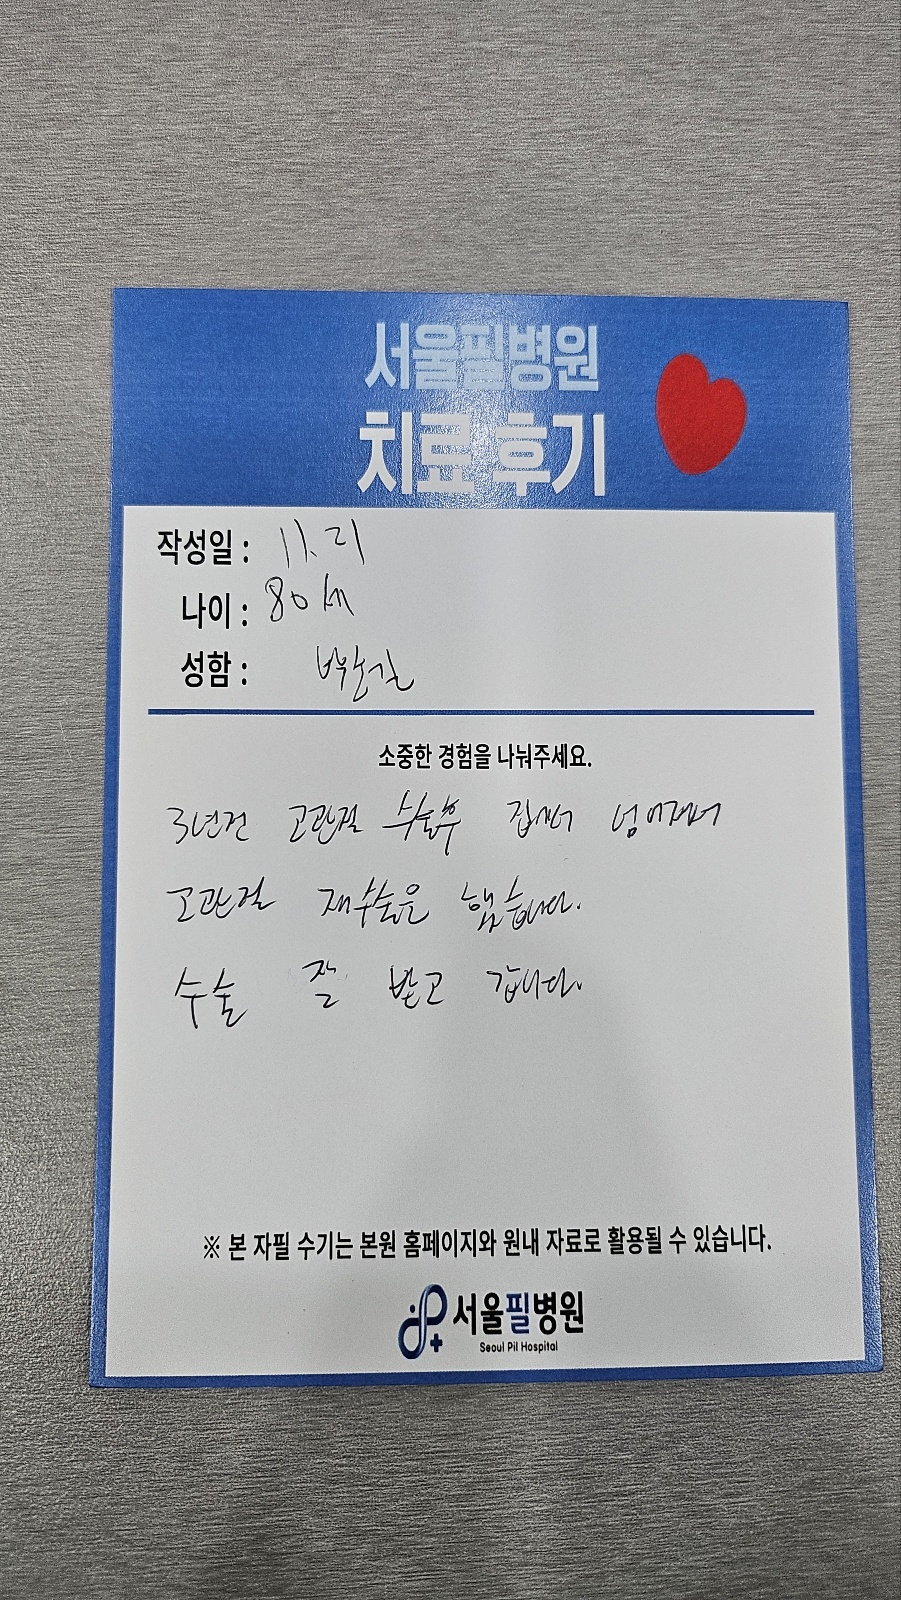 서울필병원
치료 후기
작성일 : 11. 21
나이 : 80세
성함 :
소중한 경험을 나눠주세요.
3년전 고관절 수술후 집에서 넘어져서
고관절 재수술을 했습니다.
수술 잘 받고 갑니다.
※ 본 자필 수기는 본원 홈페이지와 원내 자료로 활용될 수 있습니다.
서울필병원
Seoul Pil Hospital